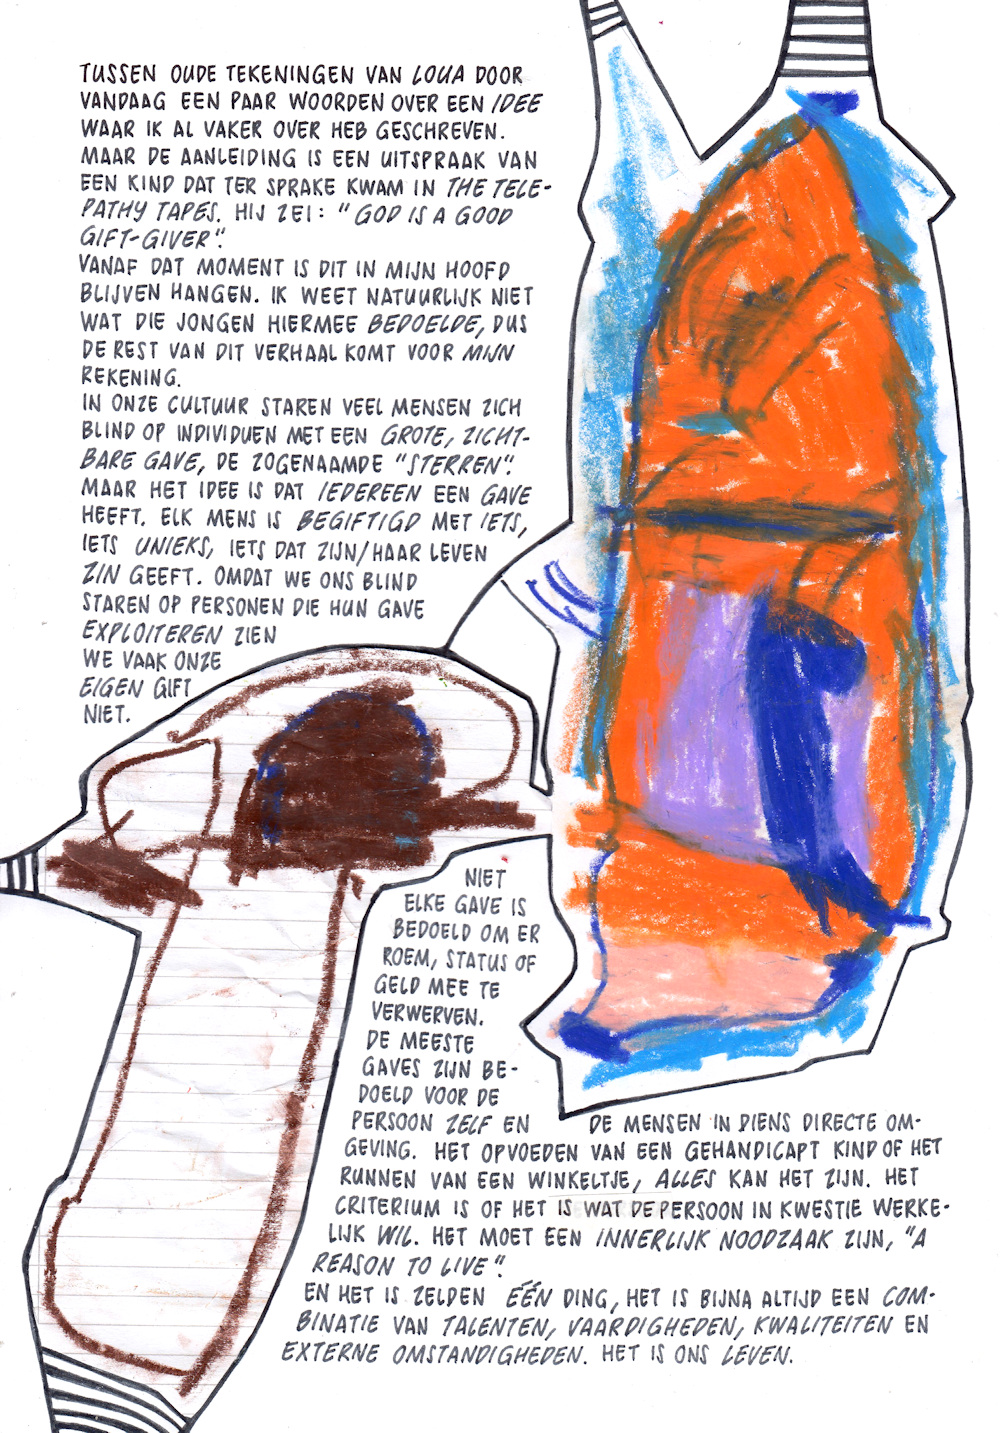 TUSSEN OUDE TEKENINGEN VAN LOUA DOOR
VANDAAG EEN PAAR WOORDEN OVER EEN IDEE
WAAR IK AL VAKER OVER HEB GESCHREVEN.
MAAR DE AANLEIDING IS EEN UITSPRAAK VAN
EEN KIND DAT TER SPRAKE KWAM IN THE TELE-
PATHY TAPES. HIJ ZEI: "GOD IS A GOOD
GIFT-GIVER".
VANAF DAT MOMENT IS DIT IN MIJN HOOFD
BLIJVEN HANGEN. IK WEET NATUURLIJK NIET
WAT DIE JONGEN HIERMEE BEDOELDE, DUS
DE REST VAN DIT VERHAAL KOMT VOOR MIJN
REKENING.
IN ONZE CULTUUR STAREN VEEL MENSEN ZICH
BLIND OP INDIVIDUEN MET EEN GROTE, ZICHT-
BARE GAVE, DE ZOGENAAMDE "STERREN".
MAAR HET IDEE IS DAT IEDEREEN EEN GAVE
HEEFT. ELK MENS IS BEGIFTIGD MET IETS,
IETS UNIEKS, IETS DAT ZIJN/HAAR LEVEN
ZIN GEEFT. OMDAT WE ONS BLIND
STAREN OP PERSONEN DIE HUN GAVE
EXPLOITEREN ZIEN
WE VAAK ONZE
EIGEN GIFT
NIET.
NIET
ELKE GAVE IS
BEDOELD OM ER
ROEM, STATUS OF
GELD MEE TE
VERWERVEN.
DE MEESTE
GAVES ZIJN BE-
DOELD VOOR DE
PERSOON ZELF EN DE MENSEN IN DIENS DIRECTE OM-
GEVING. HET OPVOEDEN VAN EEN GEHANDICAPT KIND OF HET
RUNNEN VAN EEN WINKELTJE, ALLES KAN HET ZIJN. HET
CRITERIUM IS OF HET IS WAT DE PERSOON IN KWESTIE WERKE-
LIJK WIL. HET MOET EEN INNERLIJK NOODZAAK ZIJN, "A
REASON TO LIVE".
EN HET IS ZELDEN ÉÉN DING, HET IS BIJNA ALTIJD EEN COM-
BINATIE VAN TALENTEN, VAARDIGHEDEN, KWALITEITEN EN
EXTERNE OMSTANDIGHEDEN. HET IS ONS LEVEN.